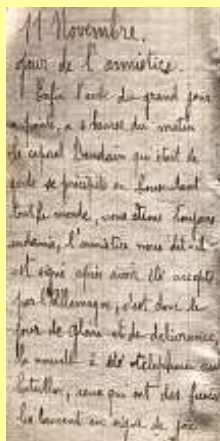 11 Novembre.
jour de l'armistice.
Enfin l'aube du grand jour
a 5 heures du matin
le caporal Baudain qui était de
garde se précipite en bousculant
tout le monde, nous étions toujours
l'armistice nous dit-il
est signé après avoir été accepté
par l'Allemagne, c'est donc le
jour de gloire et de délivrance,
la nouvelle a été téléphonée au
bataillon, ceux qui ont des fusées
les lancent en signe de joie